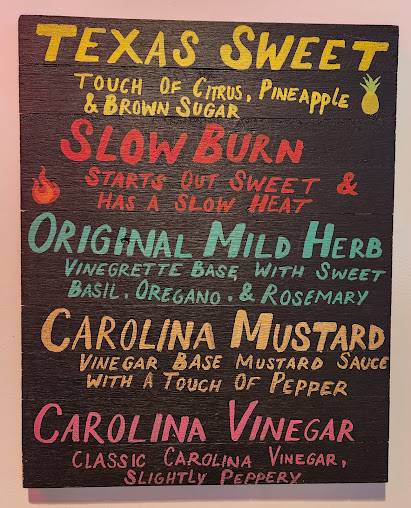 TEXAS SWEET
TOUCH OF CITRUS, PINEAPPLE
& BROWN SUGAR
SLOW BURN
STARTS OUT SWEET &
HAS A SLOW HEAT
ORIGINAL MILD HERB
VINEGRETTE BASE WITH SWEET
BASIL, OREGANO, & ROSEMARY
CAROLINA MUSTARD
VINEGAR BASE MUSTARD SAUCE
WITH A TOUCH OF PEPPER
CAROLINA VINEGAR
CLASSIC CAROLINA VINEGAR,
SLIGHTLY PEPPERY